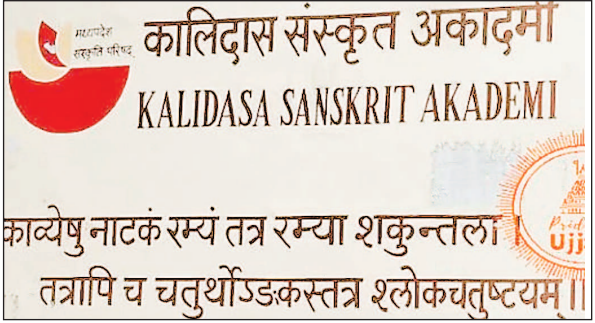 मध्यप्रदेश
संस्कृति परिषद्
कालिदास संस्कृत अकादमी
KALIDASA SANSKRIT AKADEMI
काव्येषु नाटकं रम्यं तत्र रम्या शकुन्तला ।
Ujj
तत्रापि च चतुर्थोऽङकस्तत्र श्लोकचतुष्टयम् ।।